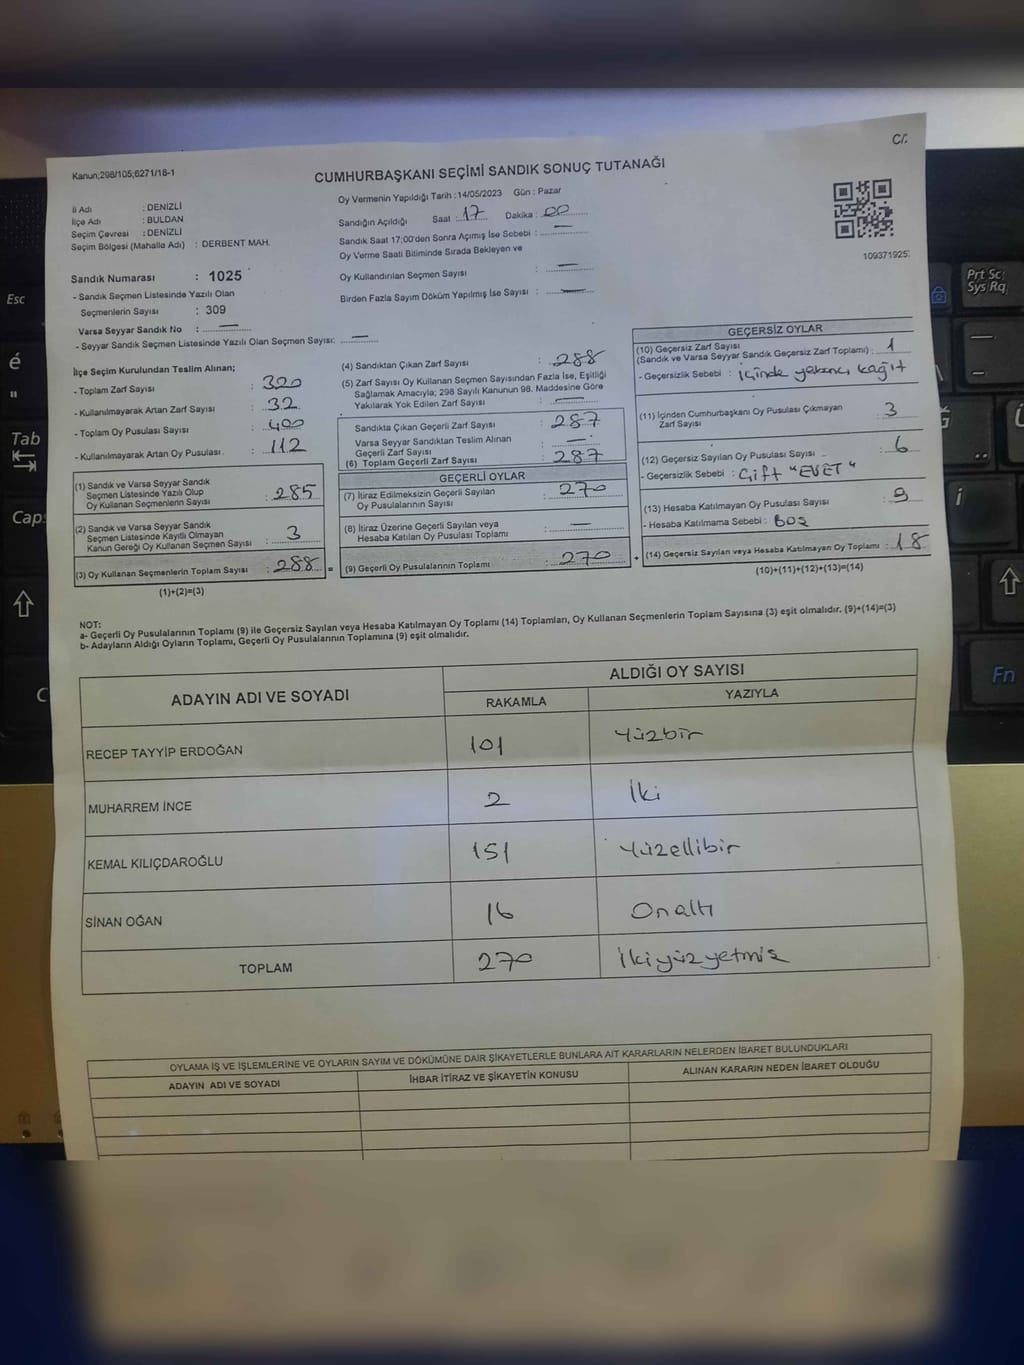 C/.
Kanun;298/105;6271/18-1
CUMHURBAŞKANI SEÇİMİ SANDIK SONUÇ TUTANAĞI
İl Adı : DENİZLİ
İlçe Adı : BULDAN
Seçim Çevresi : DENİZLİ
Seçim Bölgesi (Mahalle Adı) : DERBENT MAH.
Sandık Numarası : 1025
- Sandık Seçmen Listesinde Yazılı Olan
Seçmenlerin Sayısı : 309
Varsa Seyyar Sandık No : —
- Seyyar Sandık Seçmen Listesinde Yazılı Olan Seçmen Sayısı: —
Oy Vermenin Yapıldığı Tarih : 14/05/2023 Gün : Pazar
Sandığın Açıldığı Saat : 17 Dakika : 00
Sandık Saat 17;00'den Sonra Açımış İse Sebebi : —
Oy Verme Saati Bitiminde Sırada Bekleyen ve
Oy Kullandırılan Seçmen Sayısı : —
Birden Fazla Sayım Döküm Yapılmış İse Sayısı : —
109371925
İlçe Seçim Kurulundan Teslim Alınan;
- Toplam Zarf Sayısı : 320
- Kullanılmayarak Artan Zarf Sayısı : 32
- Toplam Oy Pusulası Sayısı : 400
- Kullanılmayarak Artan Oy Pusulası : 112
(1) Sandık ve Varsa Seyyar Sandık
Seçmen Listesinde Yazılı Olup
Oy Kullanan Seçmenlerin Sayısı : 285
(2) Sandık ve Varsa Seyyar Sandık
Seçmen Listesinde Kayıtlı Olmayan
Kanun Gereği Oy Kullanan Seçmen Sayısı : 3
(3) Oy Kullanan Seçmenlerin Toplam Sayısı : 288 =
(1)+(2)=(3)
(4) Sandıktan Çıkan Zarf Sayısı : 288
(5) Zarf Sayısı Oy Kullanan Seçmen Sayısından Fazla İse, Eşitliği
Sağlamak Amacıyla; 298 Sayılı Kanunun 98. Maddesine Göre
Yakılarak Yok Edilen Zarf Sayısı : —
Sandıkta Çıkan Geçerli Zarf Sayısı : 287
Varsa Seyyar Sandıktan Teslim Alınan
Geçerli Zarf Sayısı : —
(6) Toplam Geçerli Zarf Sayısı : 287
GEÇERLİ OYLAR
(7) İtiraz Edilmeksizin Geçerli Sayılan
Oy Pusulalarının Sayısı : 270
(8) İtiraz Üzerine Geçerli Sayılan veya
Hesaba Katılan Oy Pusulası Toplamı : —
(9) Geçerli Oy Pusulalarının Toplamı : 270 +
GEÇERSİZ OYLAR
(10) Geçersiz Zarf Sayısı
(Sandık ve Varsa Seyyar Sandık Geçersiz Zarf Toplamı) : 1
- Geçersizlik Sebebi : İçinde yabancı kağıt
(11) İçinden Cumhurbaşkanı Oy Pusulası Çıkmayan
Zarf Sayısı : 3
(12) Geçersiz Sayılan Oy Pusulası Sayısı : 6
- Geçersizlik Sebebi : Çift "EVET"
(13) Hesaba Katılmayan Oy Pusulası Sayısı : 9
- Hesaba Katılmama Sebebi : BOŞ
(14) Geçersiz Sayılan veya Hesaba Katılmayan Oy Toplamı : 18
(10)+(11)+(12)+(13)=(14)
NOT:
a- Geçerli Oy Pusulalarının Toplamı (9) ile Geçersiz Sayılan veya Hesaba Katılmayan Oy Toplamı (14) Toplamları, Oy Kullanan Seçmenlerin Toplam Sayısına (3) eşit olmalıdır. (9)+(14)=(3)
b- Adayların Aldığı Oyların Toplamı, Geçerli Oy Pusulalarının Toplamına (9) eşit olmalıdır.
ADAYIN ADI VE SOYADI ALDIĞI OY SAYISI
RAKAMLA YAZIYLA
RECEP TAYYİP ERDOĞAN 101 Yüzbir
MUHARREM İNCE 2 İki
KEMAL KILIÇDAROĞLU 151 Yüzellibir
SİNAN OĞAN 16 Onaltı
TOPLAM 270 İkiyüzyetmiş
OYLAMA İŞ VE İŞLEMLERİNE VE OYLARIN SAYIM VE DÖKÜMÜNE DAİR ŞİKAYETLERLE BUNLARA AİT KARARLARIN NELERDEN İBARET BULUNDUKLARI
ADAYIN ADI VE SOYADI İHBAR İTİRAZ VE ŞİKAYETİN KONUSU ALINAN KARARIN NEDEN İBARET OLDUĞU
Esc
é
"
Tab
Caps
Prt Sc
Sys Rq
Ğ
Ü
i
Fn